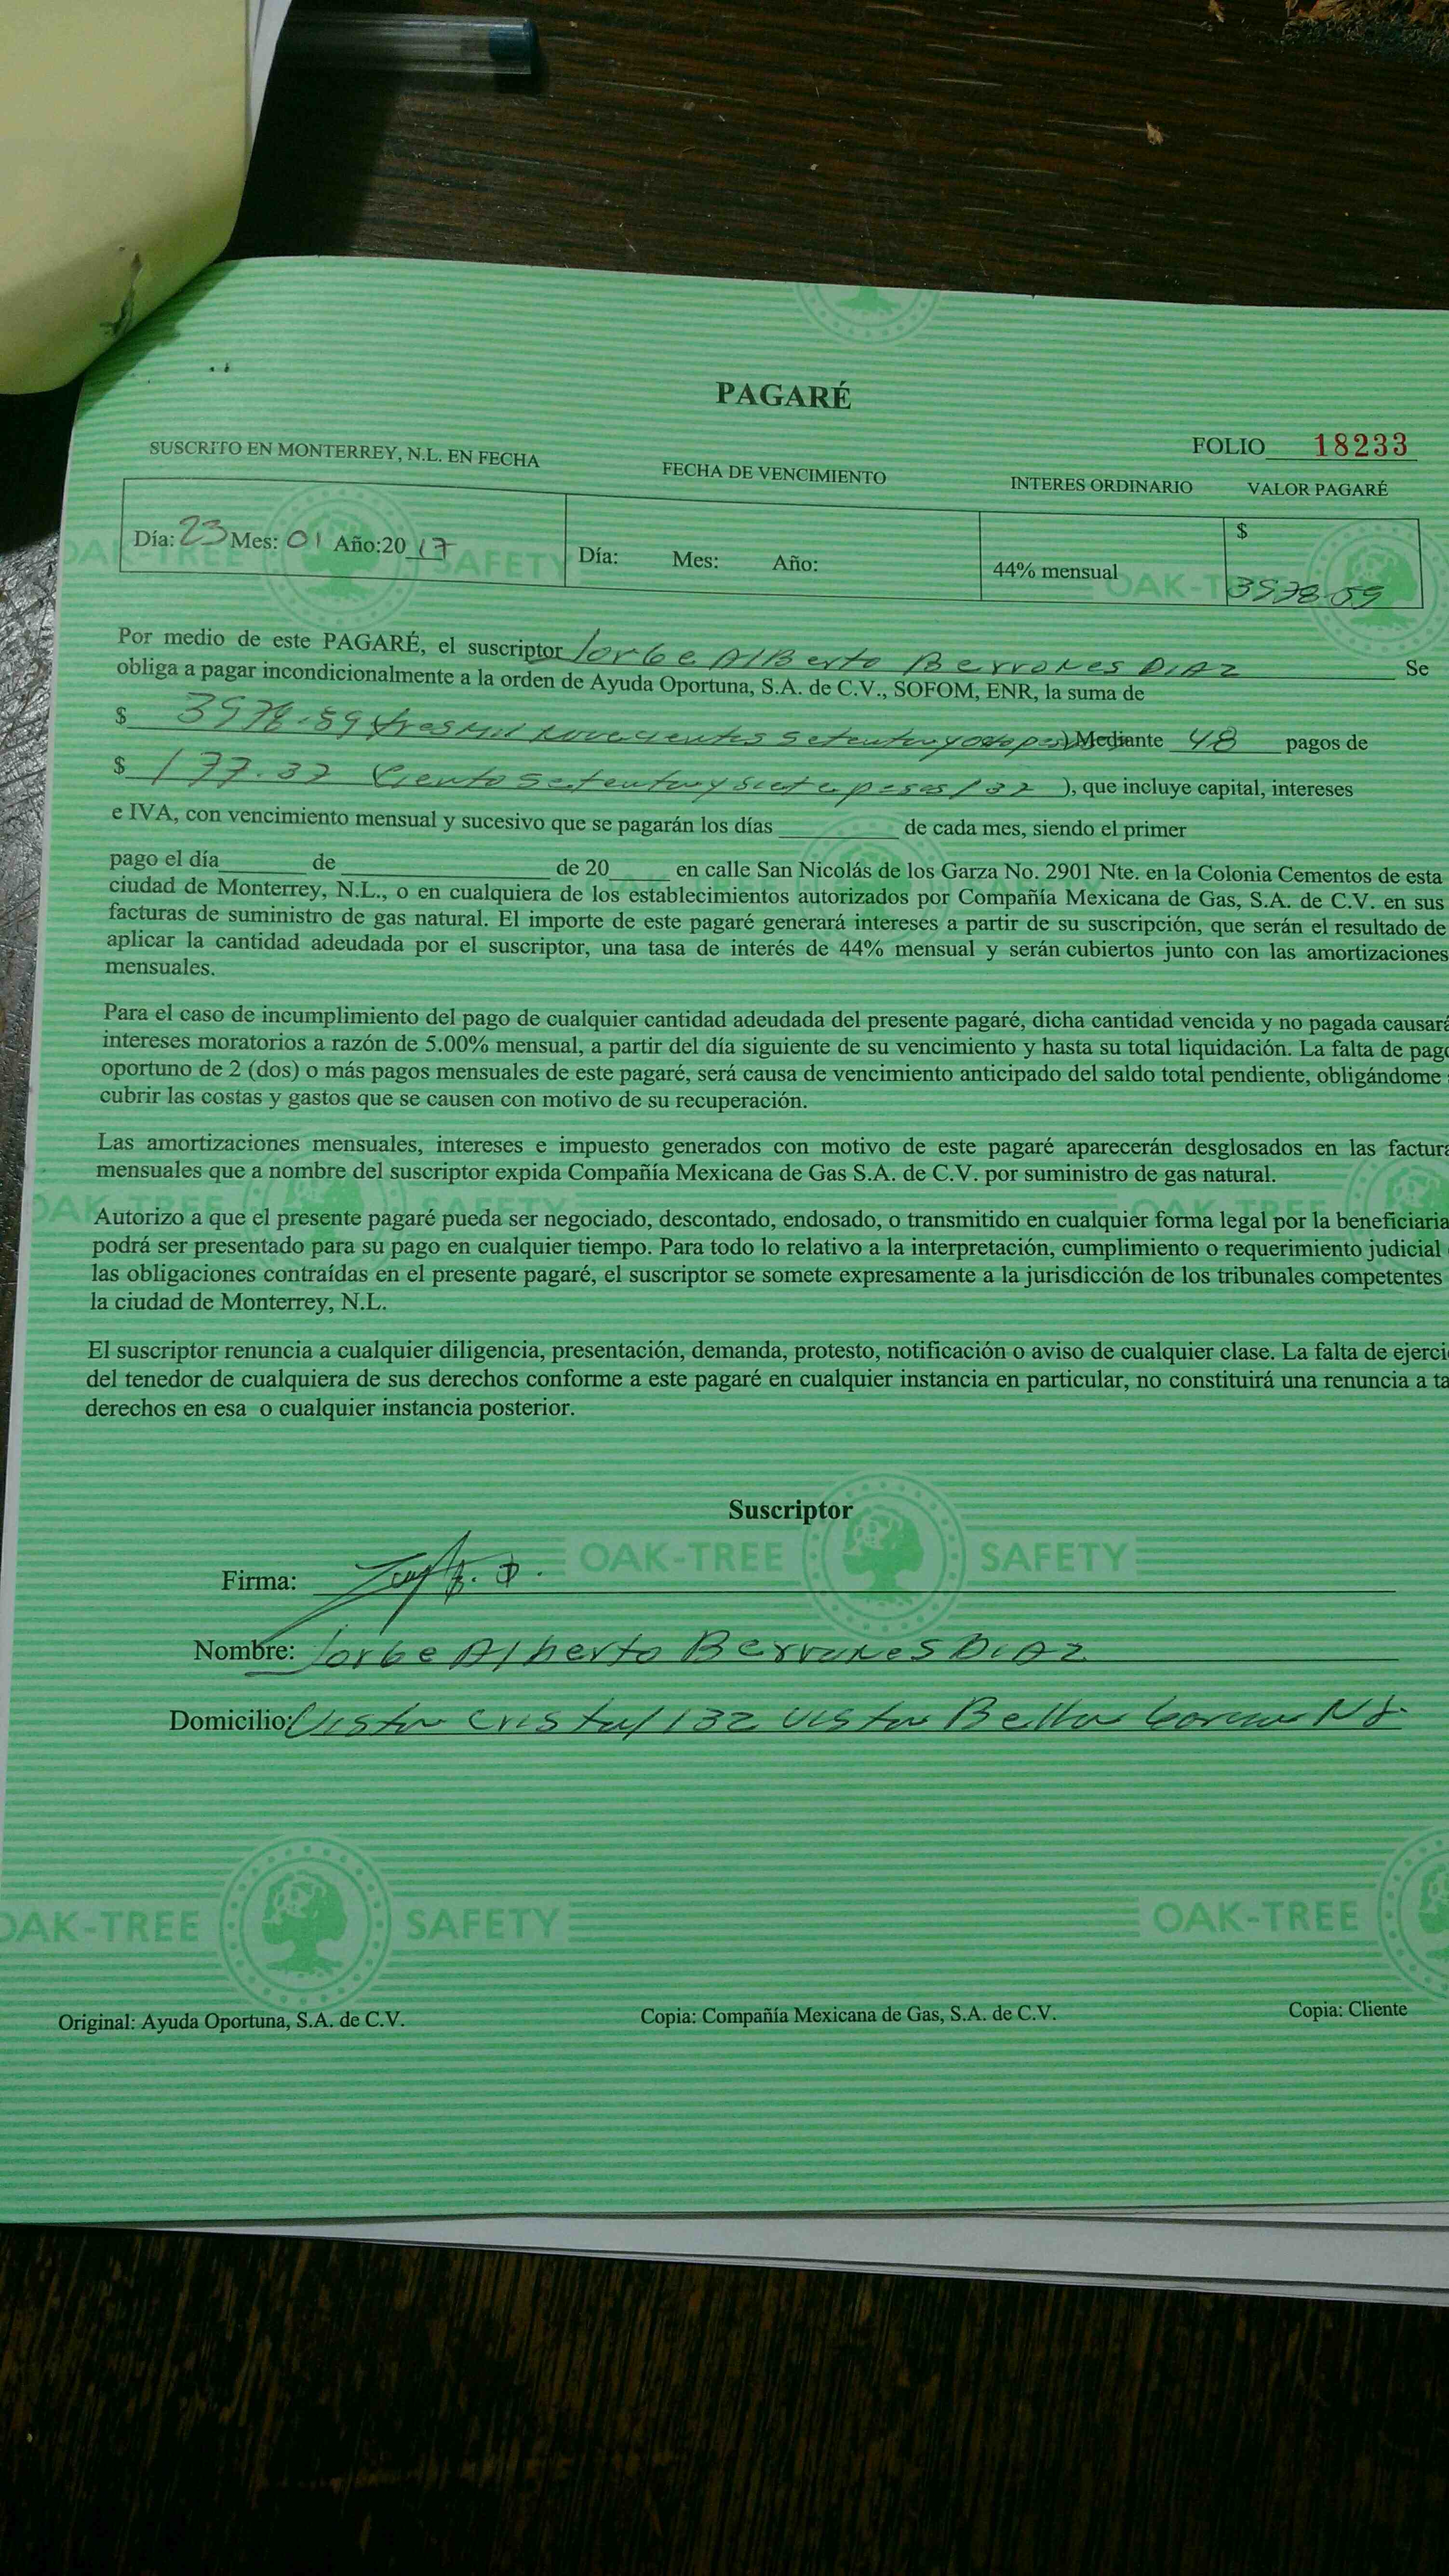 PAGARÉ
FOLIO 18233
SUSCRITO EN MONTERREY, N.L. EN FECHA FECHA DE VENCIMIENTO INTERES ORDINARIO VALOR PAGARÉ
Día: 23 Mes: 01 Año:2017 Día: Mes: Año: 44% mensual $ 3978.59
Por medio de este PAGARÉ, el suscriptor Jorge Alberto Berrones Diaz Se
obliga a pagar incondicionalmente a la orden de Ayuda Oportuna, S.A. de C.V., SOFOM, ENR, la suma de
$ 3978.59 tres mil novecientos setenta y ocho ) Mediante 48 pagos de
$ 177.32 Ciento setenta y siete pesos / 32 ), que incluye capital, intereses
e IVA, con vencimiento mensual y sucesivo que se pagarán los días de cada mes, siendo el primer
pago el día de de 20 en calle San Nicolás de los Garza No. 2901 Nte. en la Colonia Cementos de esta
ciudad de Monterrey, N.L., o en cualquiera de los establecimientos autorizados por Compañía Mexicana de Gas, S.A. de C.V. en sus
facturas de suministro de gas natural. El importe de este pagaré generará intereses a partir de su suscripción, que serán el resultado de
aplicar la cantidad adeudada por el suscriptor, una tasa de interés de 44% mensual y serán cubiertos junto con las amortizaciones
mensuales.
Para el caso de incumplimiento del pago de cualquier cantidad adeudada del presente pagaré, dicha cantidad vencida y no pagada causará
intereses moratorios a razón de 5.00% mensual, a partir del día siguiente de su vencimiento y hasta su total liquidación. La falta de pago
oportuno de 2 (dos) o más pagos mensuales de este pagaré, será causa de vencimiento anticipado del saldo total pendiente, obligándome
cubrir las costas y gastos que se causen con motivo de su recuperación.
Las amortizaciones mensuales, intereses e impuesto generados con motivo de este pagaré aparecerán desglosados en las factura
mensuales que a nombre del suscriptor expida Compañía Mexicana de Gas S.A. de C.V. por suministro de gas natural.
Autorizo a que el presente pagaré pueda ser negociado, descontado, endosado, o transmitido en cualquier forma legal por la beneficiaria
podrá ser presentado para su pago en cualquier tiempo. Para todo lo relativo a la interpretación, cumplimiento o requerimiento judicial
las obligaciones contraídas en el presente pagaré, el suscriptor se somete expresamente a la jurisdicción de los tribunales competentes
la ciudad de Monterrey, N.L.
El suscriptor renuncia a cualquier diligencia, presentación, demanda, protesto, notificación o aviso de cualquier clase. La falta de ejerci
del tenedor de cualquiera de sus derechos conforme a este pagaré en cualquier instancia en particular, no constituirá una renuncia a ta
derechos en esa o cualquier instancia posterior.
Suscriptor
OAK-TREE SAFETY
Firma:
Nombre: Jorge Alberto Berrones Diaz
Domicilio: Vista Cristal 132 Vista Bella NL.
OAK-TREE SAFETY OAK-TREE
Original: Ayuda Oportuna, S.A. de C.V. Copia: Compañía Mexicana de Gas, S.A. de C.V. Copia: Cliente